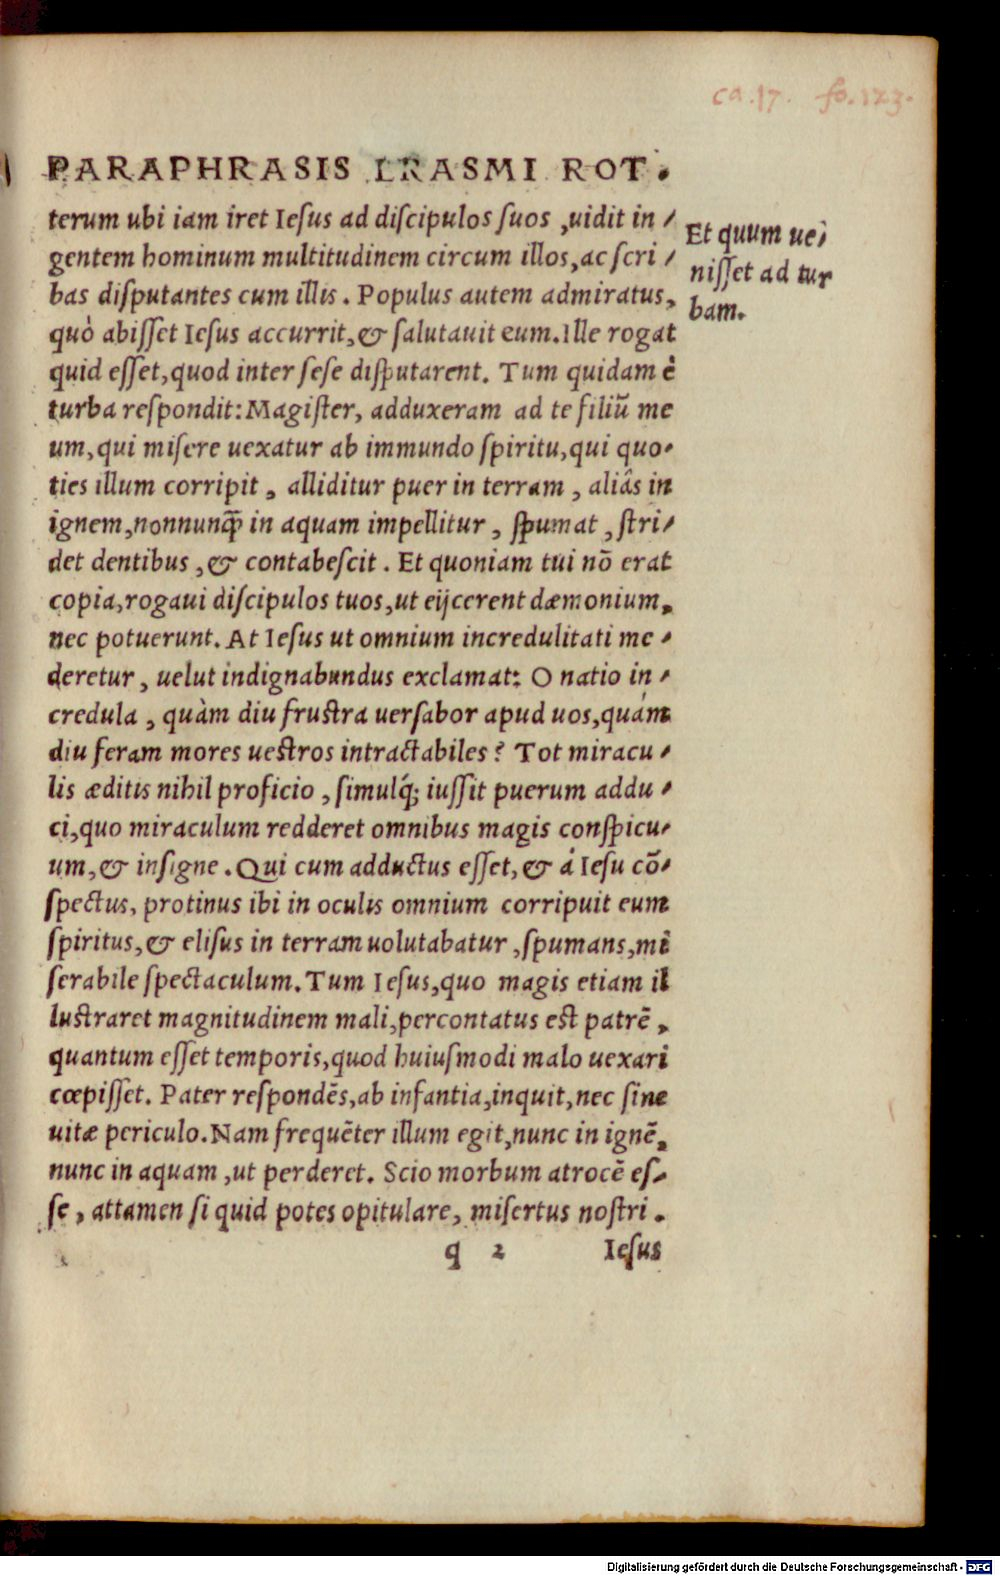 ca.17. fo.123.
PARAPHRASIS ERASMI ROT.
terum ubi iam iret Iesus ad discipulos suos ,uidit in/
gentem hominum multitudinem circum illos, ac scri/
bas disputantes cum illis. Populus autem admiratus,
quò abisset Iesus accurrit,& salutauit eum.Ille rogat
quid esset,quod inter sese disputarent. Tum quidam è
turba respondit:Magister, adduxeram ad te filiũ me
um,qui misere uexatur ab immundo spiritu,qui quo/
ties illum corripit , alliditur puer in terram , aliâs in
ignem,nonnunq̃ in aquam impellitur , spumat , stri/
det dentibus ,& contabescit . Et quoniam tui nõ erat
copia,rogaui discipulos tuos,ut eijcerent dæmonium,
nec potuerunt. At Iesus ut omnium incredulitati me/
deretur , uelut indignabundus exclamat: O natio in/
credula , quàm diu frustra uersabor apud uos,quám
diu feram mores uestros intractabiles? Tot miracu/
lis æditis nihil proficio , simulq́; iussit puerum addu/
ci,quo miraculum redderet omnibus magis conspicu/
um,& insigne .Qui cum adductus esset,& á Iesu cõ/
spectus, protinus ibi in oculis omnium corripuit eum
spiritus,& elisus in terram uolutabatur ,spumans,mi
serabile spectaculum.Tum Iesus,quo magis etiam il
lustraret magnitudinem mali,percontatus est patrẽ ,
quantum esset temporis,quod huiusmodi malo uexari
cœpisset. Pater respondẽs,ab infantia,inquit,nec sine
uitæ periculo.Nam frequẽter illum egit,nunc in ignẽ,
nunc in aquam ,ut perderet. Scio morbum atrocẽ es/
se , attamen si quid potes opitulare, misertus nostri .
q 2 Iesus
Et quum ue/
nisset ad tur
bam.
Digitalisierung gefördert durch die Deutsche Forschungsgemeinschaft - DFG